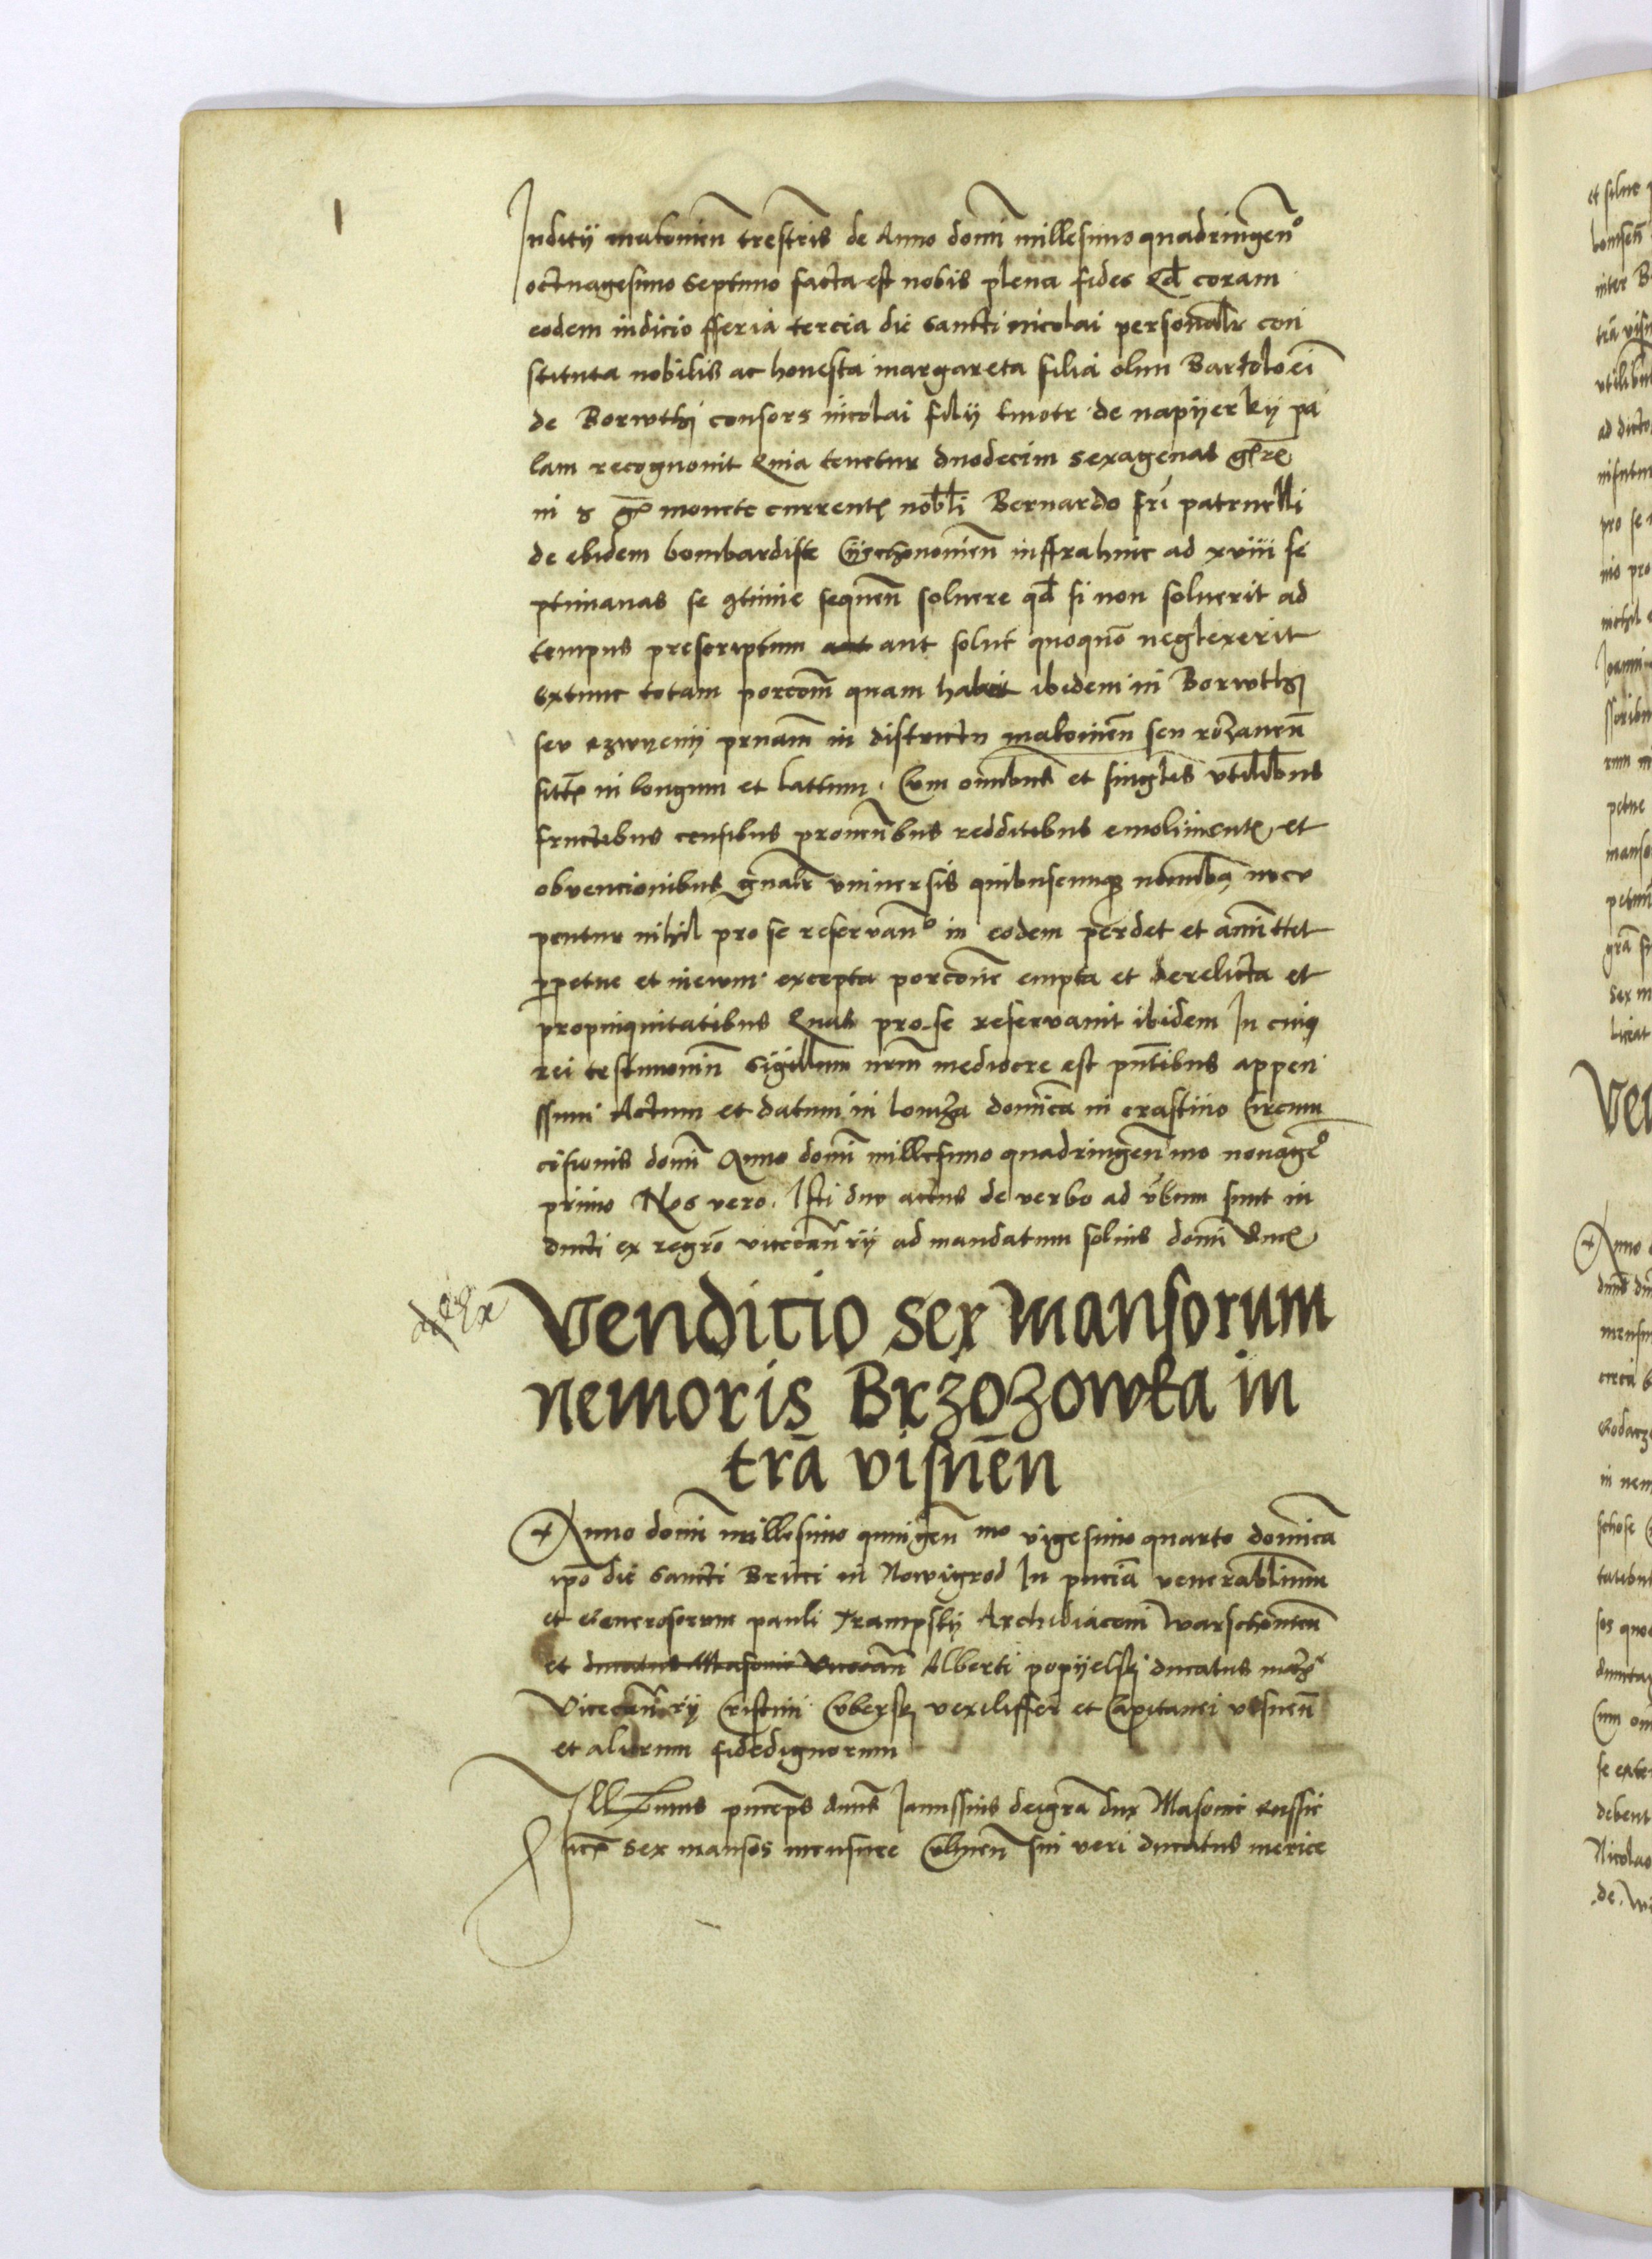 Iudicÿ makouien̄ trēstris de Anno domī millesimo quadringeno
octuagesimo septimo facta est nobis plena fides Qd coram
eodem iudicio fferia tercia die sancti nicolai personalr con
stituta nobilis ac honesta margareta filia olim Bartoloei
de Borwthi consors nicolai filÿ de napÿerkÿ pa
lam recognouit Quia tenetur duodecim sexagenas
in monete currentꝭ nobli Bernardo fri patrueli
de ibidem bombardiste inffrahinc ad xviii se
ptimanas se sequen̄ soluere qd si non soluerit ad
tempus prescriptum aut solut quoquo neglexerit
Extunc totam porcom̄ quam habet ibidem in Borwthi
seu in districtu makouien̄ seu rozanen̄
sitꝭ in longum et lattum. Cum omibus et singlis vtilibus
fructibus censibus prouenbus redditibus emolimentꝭ et
obvencionibus gnalr vniuersis quibuscumqꝫ
pentur nihil pro se reservano in eodem perdet et amittet
ꝑpetue et in ewm excepta porcone empta et derelicta et
propinquitatibus Quas pro se reservauit ibidem In cuiꝰ
rei testimoniū sigillum nrm mediocre est pntibus appen
ssum Actum et datum in lomza domica in crastino Circum
cisionis domī Anno domī millesimo quadringenmo nonageo
primo Nos vero. Isti duo actus de verbo ad vbum sunt in
ducti ex regro vicecanrÿ ad mandatum solius domī ducꝭ
Vendicio sex mansorum
nemoris Brzozowka in
trā visnēn
Anno domī millesimo quingen mo vigesimo quarto domica
ipo die sancti Bricci in Nowigrod In pncia venerablium
et Generosorum pauli Trampskÿ Archidiaconi warschouien̄
et ducatus Masouie Vicecan̄ Alberti popÿelskj ducatus
Vicecanrÿ Cristini vexiliffei et Capitanei visnen̄
et aliorum fidedignorum
Illmus pnceps dnus Janussius dei gra dux Masouie Russie
ꝛcꝭ sex mansos mensure Chlmen̄ sui veri ducatus merice